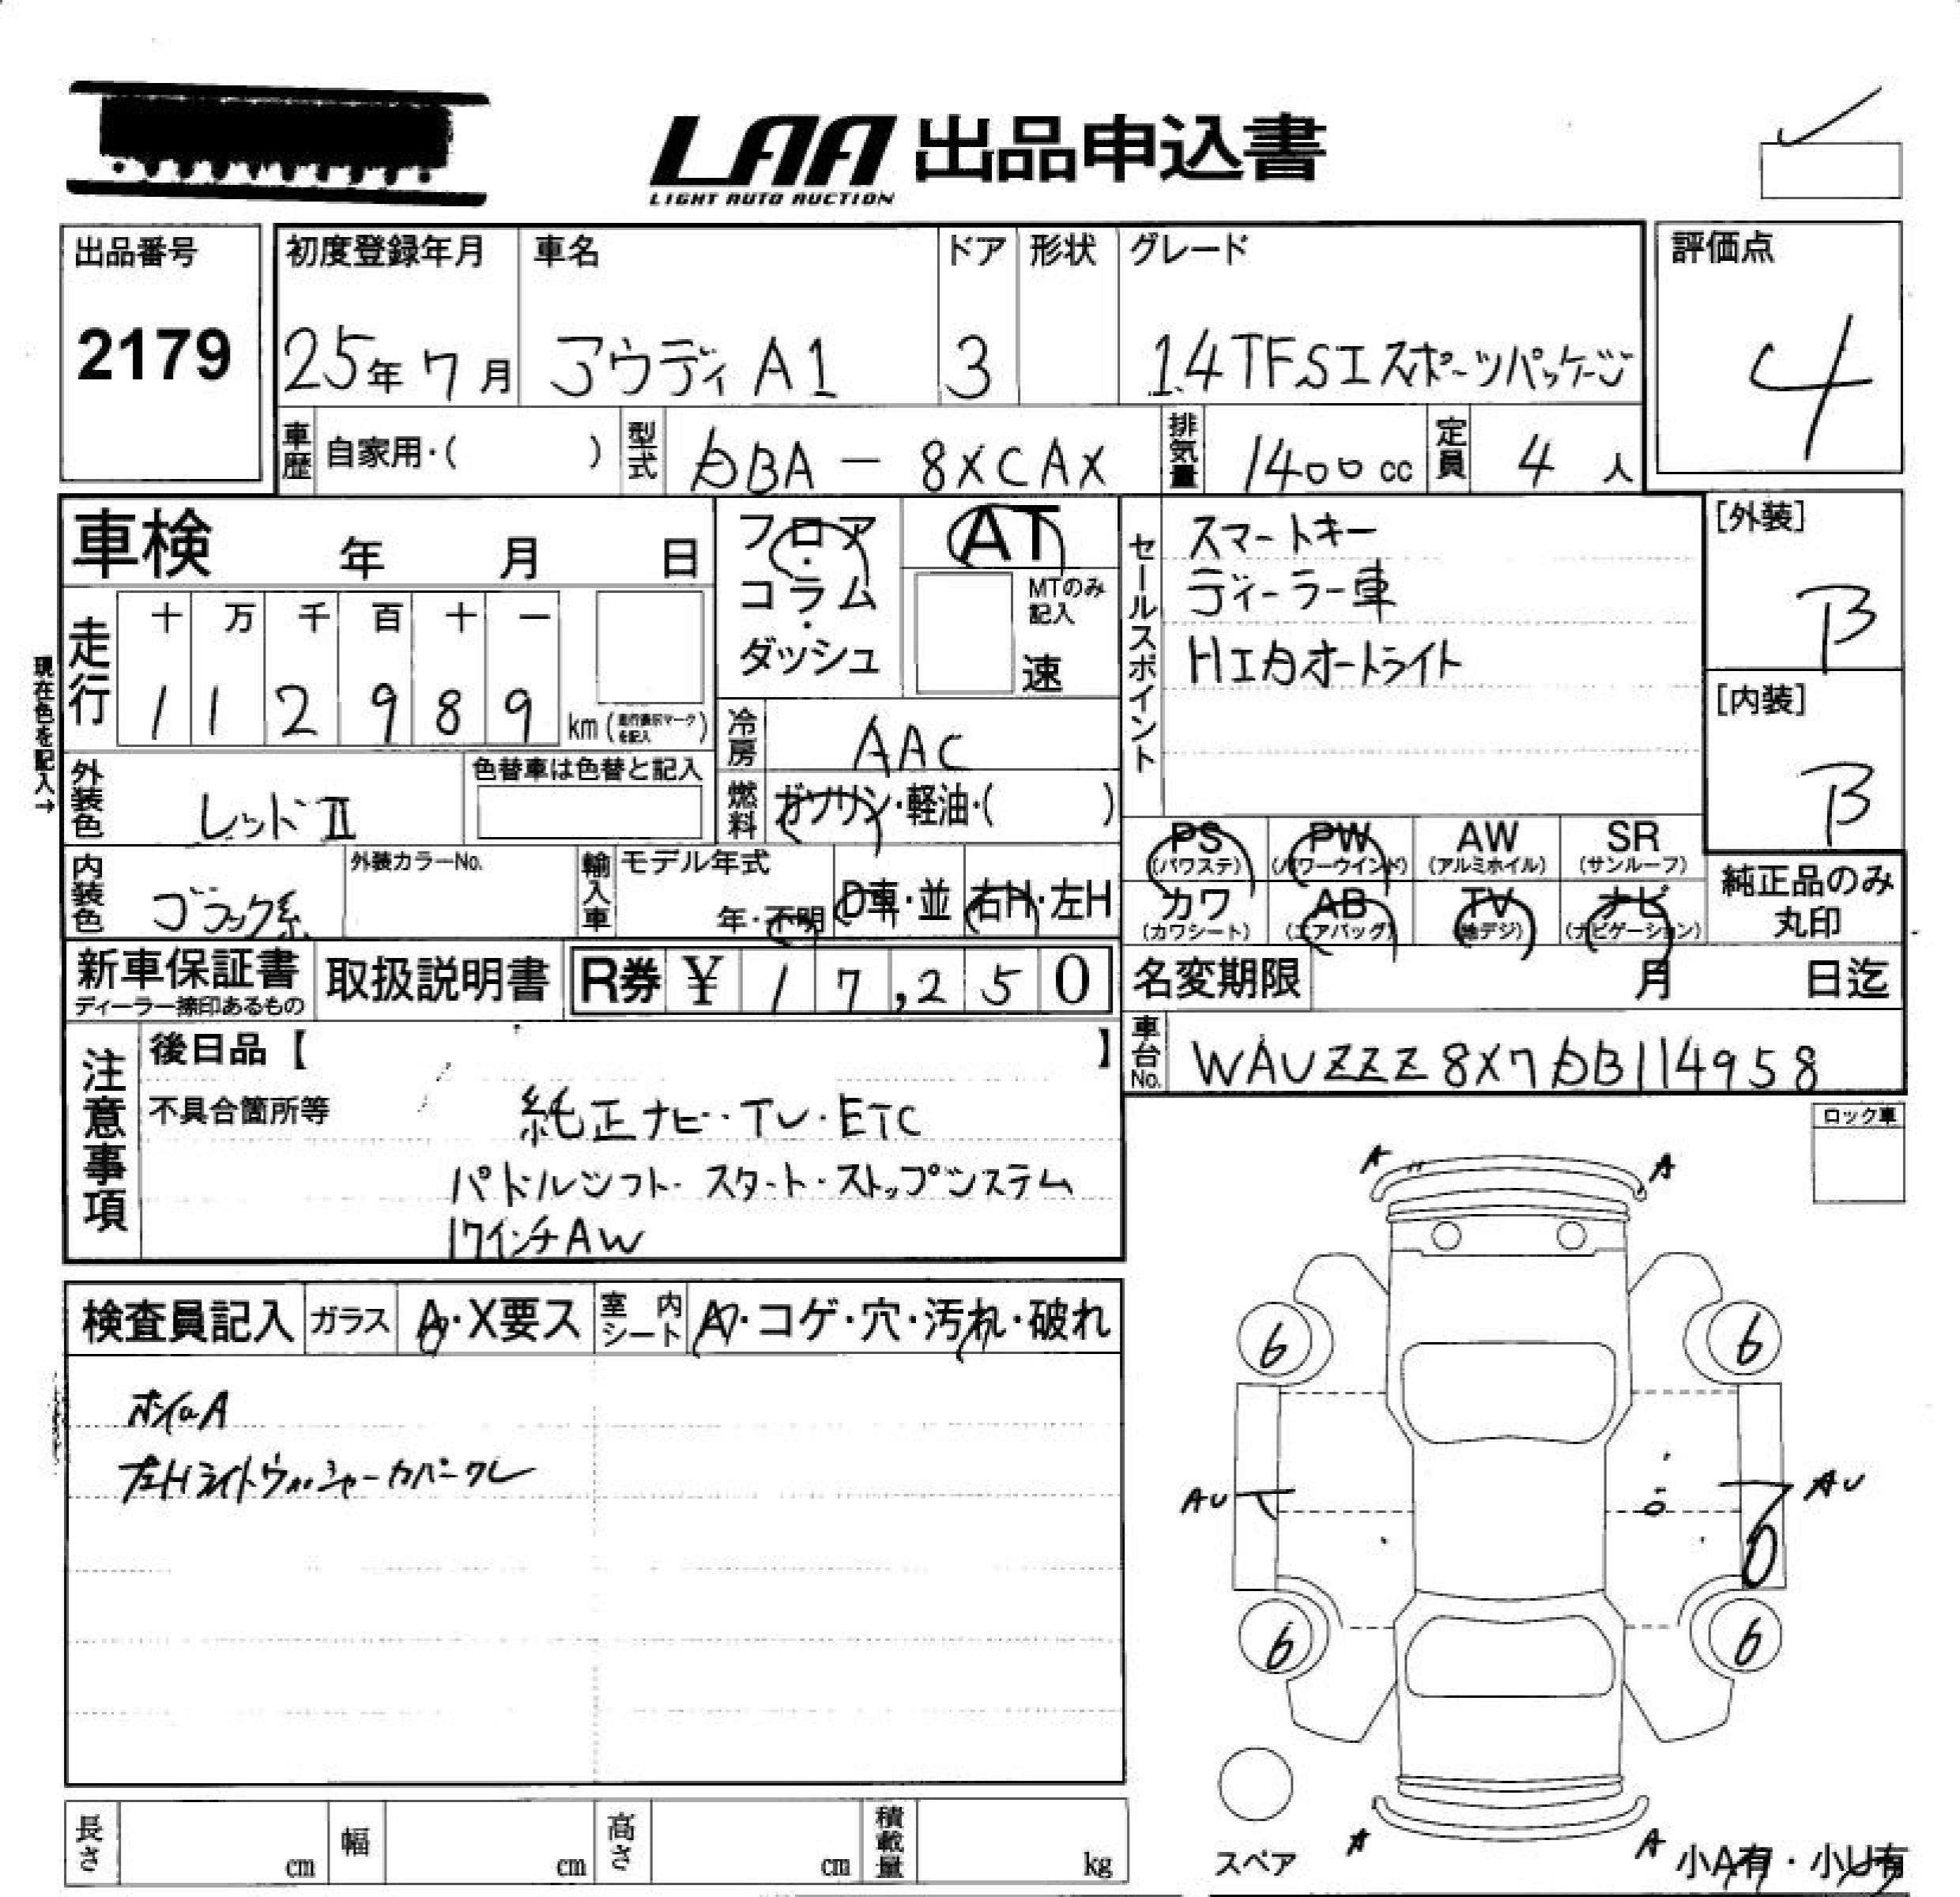 LAA 出品申込書
LIGHT AUTO AUCTION
出品番号
2179
初度登録年月
25年7月
車名
アウディ A1
ドア
3
形状
グレード
1.4TFSIスポーツパッケージ
評価点
4
車歴
自家用・( )
型式
DBA - 8XCAX
排気量
1400cc
定員
4人
車検 年 月 日
フロア・
コラム・
ダッシュ
AT
MTのみ
記入
速
セールスポイント
スマートキー
ディーラー車
HIDオートライト
[外装]
B
[内装]
B
現在色を記入→
走行
十 万 千 百 十 一
1 1 2 9 8 9 km(走行表示マークを記入)
冷房
AAC
外装色
レッドII
色替車は色替と記入
燃料
ガソリン・軽油・( )
PS
(パワステ)
PW
(パワーウインド)
AW
(アルミホイル)
SR
(サンルーフ)
内装色
ブラック系
外装カラーNo.
輸入車
モデル年式
年・不明
D車・並
右H・左H
カワ
(カワシート)
AB
(エアバッグ)
TV
(地デジ)
ナビ
(ナビゲーション)
純正品のみ
丸印
新車保証書
ディーラー捺印あるもの
取扱説明書
R券 ¥ 17,250
名変期限 月 日迄
車台No.
WAUZZZ8X7DB114958
注意事項
後日品【 】
不具合箇所等
純正ナビ・TV・ETC
パドルシフト・スタート・ストップシステム
17インチAW
ロック車
検査員記入
ガラス
A・X要ス
室内シート
A・コゲ・穴・汚れ・破れ
ホイルA
左Hライトウォッシャーカバークレ
A A
6 6
AU AU
6 6
スペア
A A
小A有・小U有
長さ cm
幅 cm
高さ cm
積載量 kg